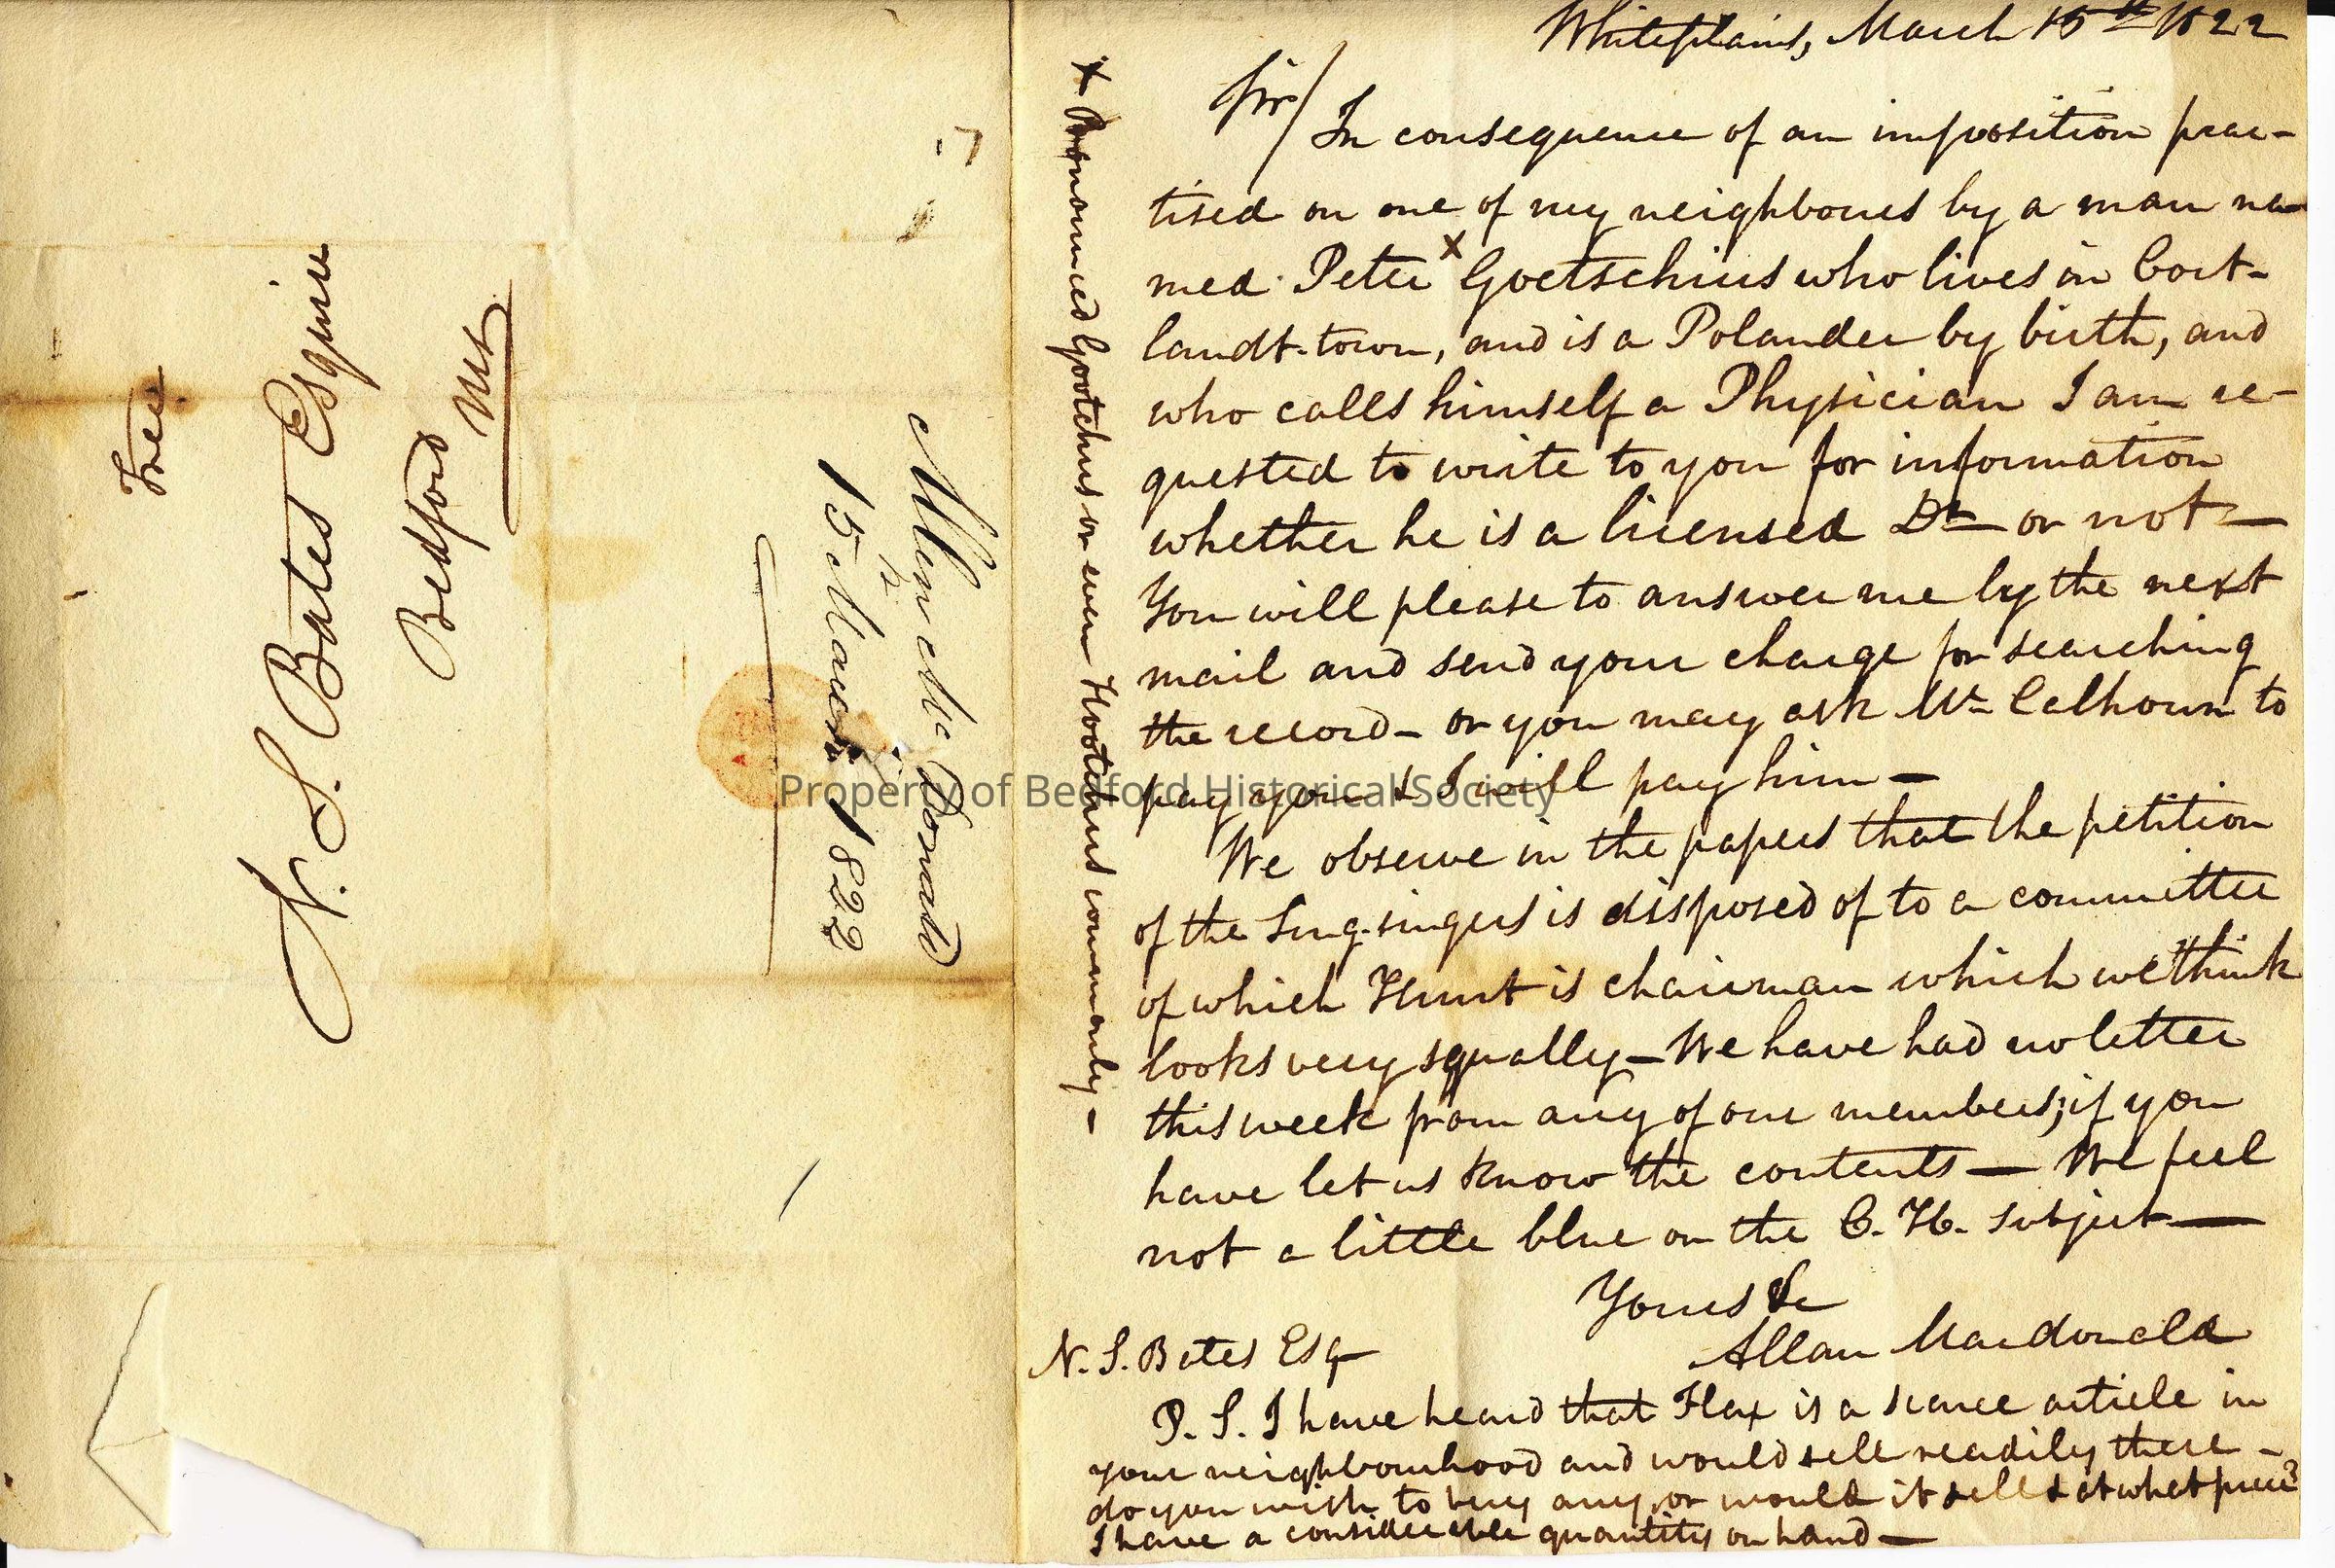 Free
N. S. Bates Esquire
Bedford
Allen Mc Donald
15 March 1822
Whiteplains, March 15th 1822
Sir/ In consequence of an imposition prac-
tised on one of my neighbours by a man na-
med Peter x Goetschius who lives in Cort-
landt-town, and is a Polander by birth, and
who calls himself a Physician I am re-
quested to write to you for information
whether he is a licensed Dr or not —
You will please to answer me by the next
mail and send your charge for searching
the record — or you may ask Mr Calhoun to
pay you & I will pay him —
We observe in the papers that the petition
of the Sing-singers is disposed of to a committee
of which Hunt is chairman which we think
looks very squally — We have had no letter
this week from any of our members; if you
have let us know the contents — We feel
not a little blue on the C. H. subject —
Yours &c
Allan Macdonald
N. S. Bates Esq
P. S. I have heard that Flax is a scarce article in
your neighbourhood and would sell readily there -
do you wish to buy any, or would it sell & at what price?
I have a considerable quantity on hand —
x Pronounced Gootchus or even Hootchus commonly —
Property of Bedford Historical Society